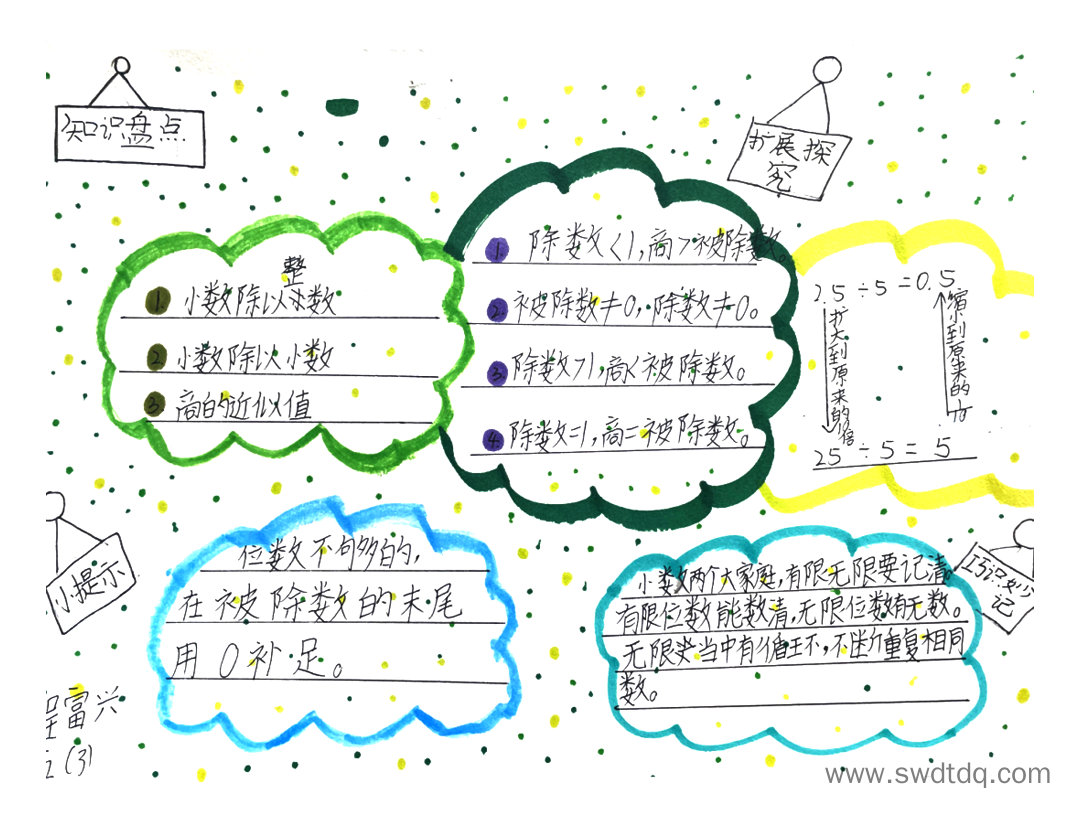 知识盘点
扩展探
究
整
1. 小数除以数
2 小数除以小数
3 商的近似值
1. 除数<1,商>被除数。
2. 被除数≠0,除数≠0。
3. 除数>1,商<被除数。
4. 除数=1,商=被除数。
2.5÷5=0.5
扩大到原来的倍
缩小到原来的
25÷5=5
小提示
位数不够的,
在被除数的末尾
用0补足。
巧识妙
记
小数两个大家庭,有限无限要记清。
有限位数能数清,无限位数有无数。
无限当中有循环,不断重复相同
数。
富兴
(3)
www.swdtdq.com